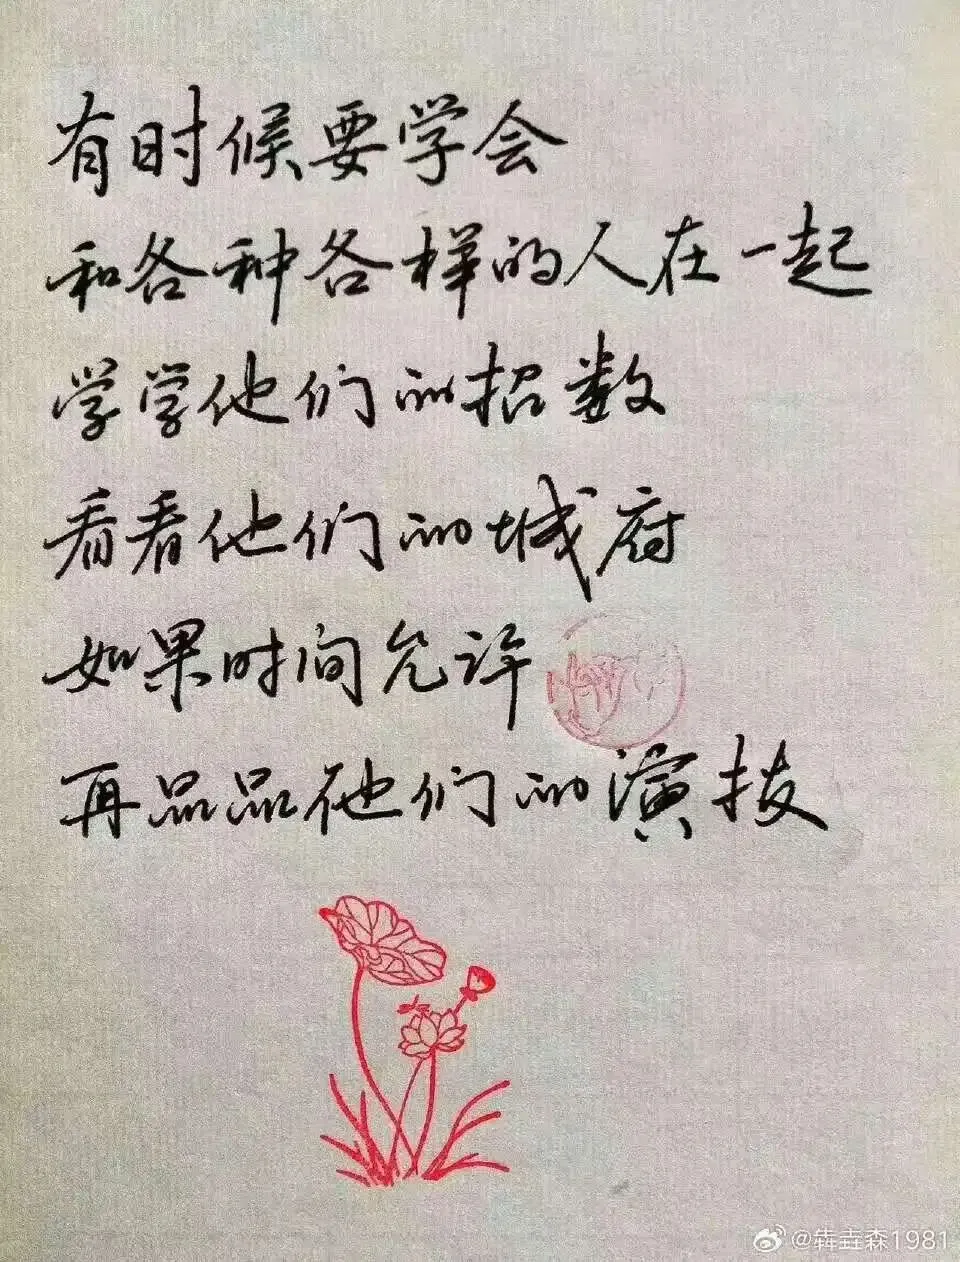 有时候要学会
和各种各样的人在一起
学学他们的招数
看看他们的城府
如果时间允许
再品品他们的演技
@犇垚森1981